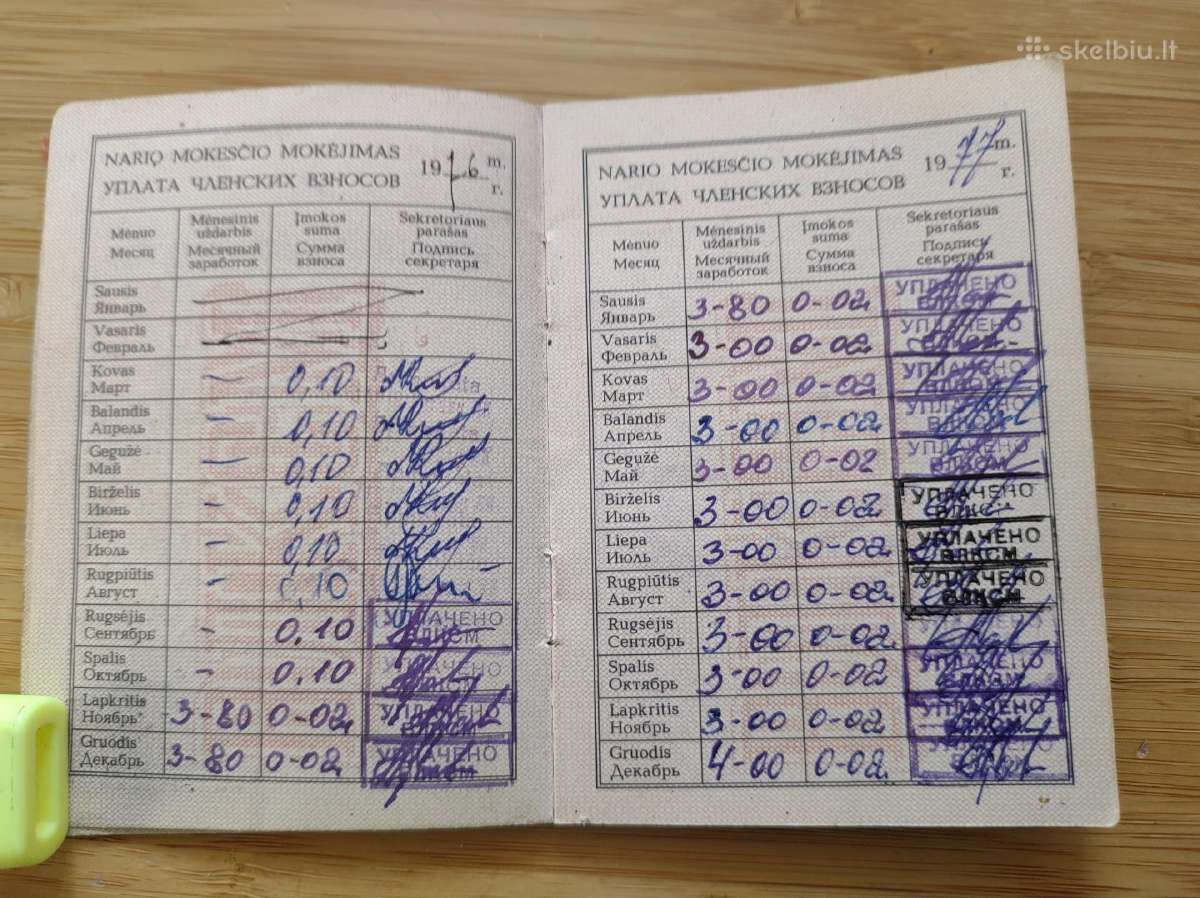 skelbiu.lt
NARIO MOKESČIO MOKĖJIMAS
УПЛАТА ЧЛЕНСКИХ ВЗНОСОВ
1976 m.
г.
Mėnuo
Месяц
Mėnesinis uždarbis
Месячный заработок
Įmokos suma
Сумма взноса
Sekretoriaus parašas
Подпись секретаря
Sausis
Январь
Vasaris
Февраль
Kovas
Март — 0,10
Balandis
Апрель — 0,10
Gegužė
Май — 0,10
Birželis
Июнь — 0,10
Liepa
Июль — 0,10
Rugpiūtis
Август — 0,10
Rugsėjis
Сентябрь — 0,10 УПЛАЧЕНО ВЛКСМ
Spalis
Октябрь — 0,10 УПЛАЧЕНО
Lapkritis
Ноябрь 3-80 0-02 УПЛАЧЕНО
Gruodis
Декабрь 3-80 0-02 УПЛАЧЕНО
NARIO MOKESČIO MOKĖJIMAS
УПЛАТА ЧЛЕНСКИХ ВЗНОСОВ
1977 m.
г.
Mėnuo
Месяц
Mėnesinis uždarbis
Месячный заработок
Įmokos suma
Сумма взноса
Sekretoriaus parašas
Подпись секретаря
Sausis
Январь 3-80 0-02 УПЛАЧЕНО ВЛКСМ
Vasaris
Февраль 3-00 0-02 УПЛАЧЕНО
Kovas
Март 3-00 0-02 УПЛАЧЕНО ВЛКСМ
Balandis
Апрель 3-00 0-02 УПЛАЧЕНО ВЛКСМ
Gegužė
Май 3-00 0-02 УПЛАЧЕНО ВЛКСМ
Birželis
Июнь 3-00 0-02 УПЛАЧЕНО ВЛКСМ
Liepa
Июль 3-00 0-02 УПЛАЧЕНО ВЛКСМ
Rugpiūtis
Август 3-00 0-02 УПЛАЧЕНО ВЛКСМ
Rugsėjis
Сентябрь 3-00 0-02 УПЛАЧЕНО
Spalis
Октябрь 3-00 0-02 УПЛАЧЕНО ВЛКСМ
Lapkritis
Ноябрь 3-00 0-02 УПЛАЧЕНО
Gruodis
Декабрь 4-00 0-02 УПЛАЧЕНО